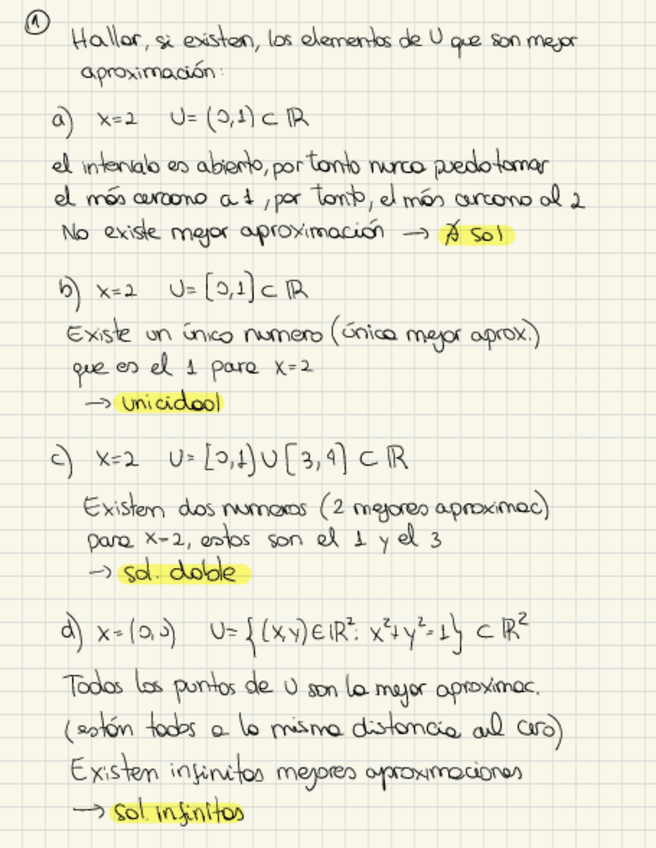 ①
Hallar, si existen, los elementos de U que son mejor
aproximación:
a) x=2 U=(0,1)⊂ℝ
el intervalo es abierto, por tanto nunca puedo tomar
el más cercano a 1, por tanto, el más cercano al 2
No existe mejor aproximación → ∄ sol
b) x=2 U=[0,1]⊂ℝ
Existe un único numero (única mejor aprox.)
que es el 1 para x=2
→ unicidad
c) x=2 U=[0,1]∪[3,4]⊂ℝ
Existen dos numeros (2 mejores aproximac)
para x=2, estos son el 1 y el 3
→ sol. doble
d) x=(0,0) U={(x,y)∈ℝ²: x²+y²=1}⊂ℝ²
Todos los puntos de U son la mejor aproximac.
(están todos a la misma distancia al cero)
Existen infinitas mejores aproximaciones
→ sol. infinitas